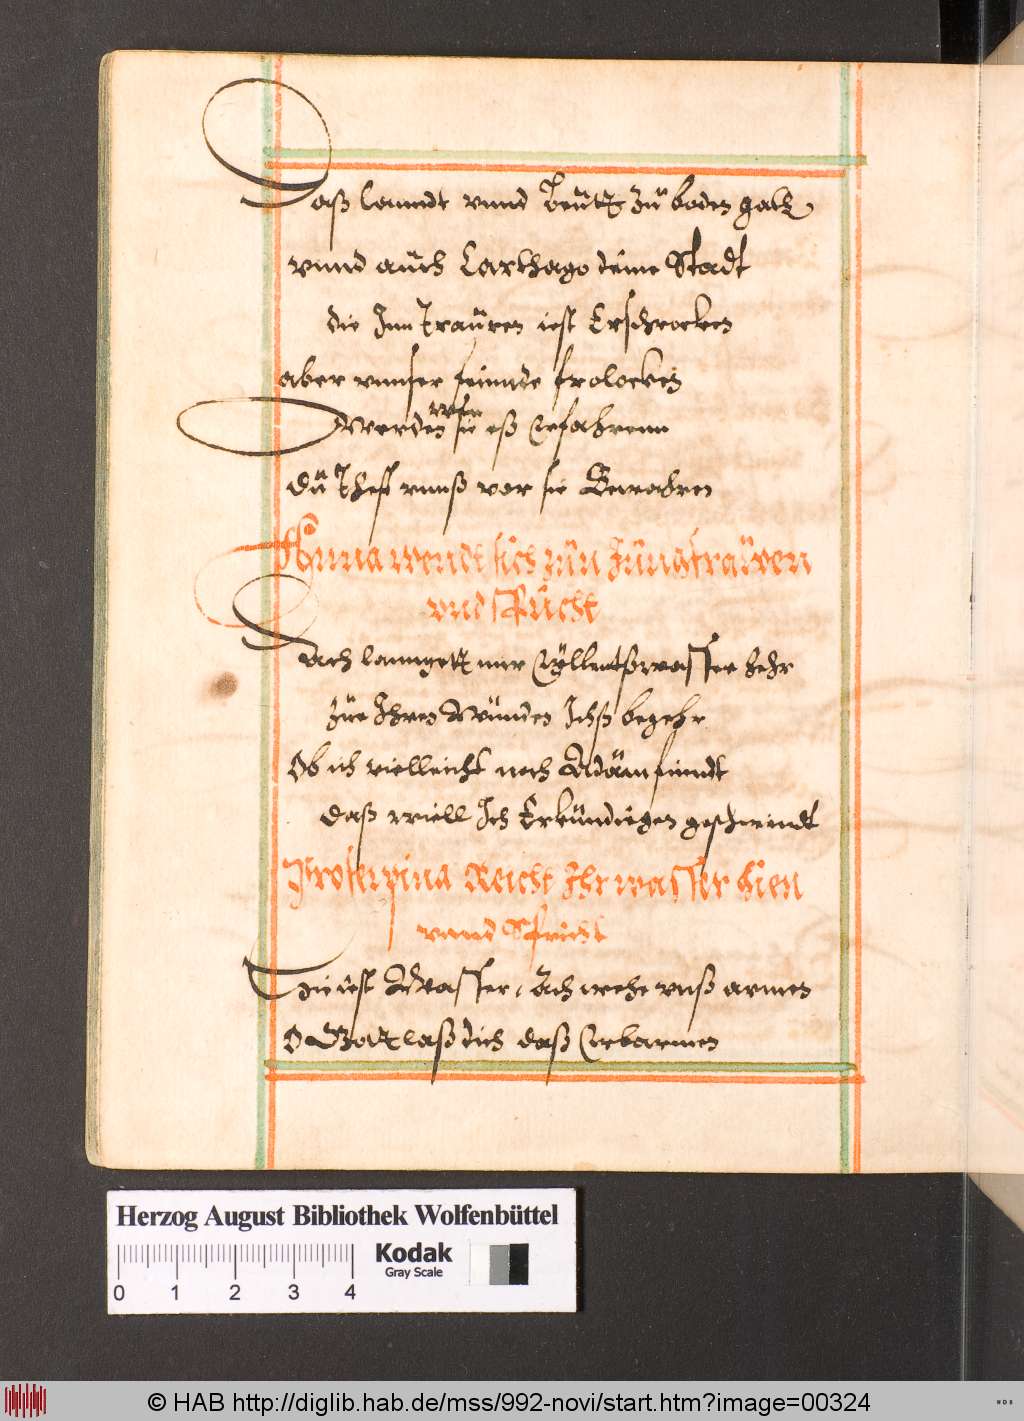 Daß lanndt vnnd Leütt zü boden gatt
vnnd aüch Carthago deine Stadt
die Inn Traüren iest Erschrocken
aber vnnser feinnde frolocken
Werden wen sie eß Erfahrenn
dü Thest vnnß vor sie Bewahren
Anna wendt sich zün Jüngfraüwen
vnd Spücht
Ach lannget mir Cÿllentß wasser hehr
züe Ihren Wünden Ichß begehr
Ob ich vielleicht noch Adäm findt
daß wiell Ich Erkündigen geschwindt
Proserpina Reicht Ihr wasser hien
vnnd Spricht
Hie iest Wasser, Ach wehe vnß armen
O Gott laß dich daß Erbarmen
Herzog August Bibliothek Wolfenbüttel
Kodak
Gray Scale
0 1 2 3 4
© HAB http://diglib.hab.de/mss/992-novi/start.htm?image=00324